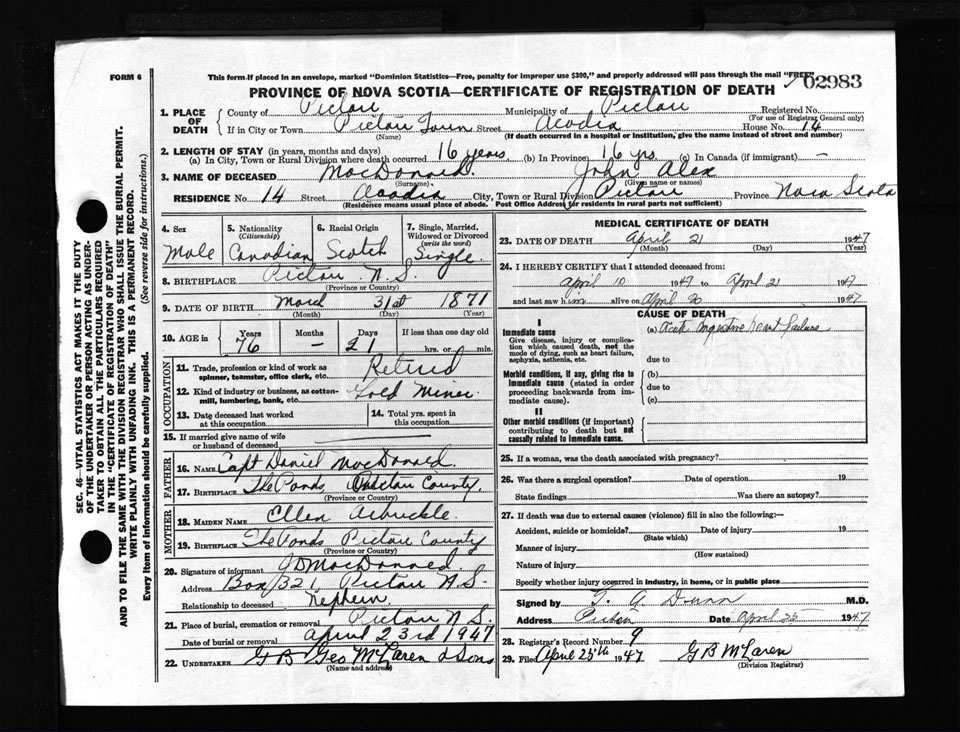 FORM 6
This form if placed in an envelope, marked "Dominion Statistics—Free, penalty for improper use $300," and properly addressed will pass through the mail "FREE"
02983
PROVINCE OF NOVA SCOTIA—CERTIFICATE OF REGISTRATION OF DEATH
1. PLACE OF DEATH County of Pictou Municipality of Pictou Registered No.
(For use of Registrar General only)
If in City or Town Pictou Town Street Acadia House No. 14
(Name) (If death occurred in a hospital or institution, give the name instead of street and number)
2. LENGTH OF STAY (in years, months and days)
(a) In City, Town or Rural Division where death occurred 16 years (b) In Province 16 yrs. (c) In Canada (if immigrant) —
3. NAME OF DECEASED MacDonald John Alex
(Surname) (Given name or names)
RESIDENCE No. 14 Street Acadia City, Town or Rural Division Pictou Province Nova Scotia
(Residence means usual place of abode. Post Office Address for residents in rural parts not sufficient)
4. Sex Male
5. Nationality (Citizenship) Canadian
6. Racial Origin Scotch
7. Single, Married, Widowed or Divorced (write the word) Single.
8. BIRTHPLACE Pictou N.S.
(Province or Country)
9. DATE OF BIRTH March 31st 1871
(Month) (Day) (Year)
10. AGE IN Years 76 Months — Days 21 If less than one day old hrs. or min.
OCCUPATION
11. Trade, profession or kind of work as spinner, teamster, office clerk, etc. Retired
12. Kind of industry or business, as cotton-mill, lumbering, bank, etc. Gold Miner
13. Date deceased last worked at this occupation
14. Total yrs. spent in this occupation
15. If married give name of wife or husband of deceased
FATHER
16. NAME Capt Daniel MacDonald.
17. BIRTHPLACE The Ponds Pictou County.
(Province or Country)
MOTHER
18. MAIDEN NAME Ellen Arbuckle
19. BIRTHPLACE The Ponds Pictou County
(Province or Country)
20. Signature of informant MacDonald.
Address Box 321 Pictou N.S.
Relationship to deceased Nephew
21. Place of burial, cremation or removal Pictou N.S.
Date of burial or removal April 23rd 1947
22. UNDERTAKER GB Geo McLaren & Sons
(Name and address)
MEDICAL CERTIFICATE OF DEATH
23. DATE OF DEATH April 21 1947
(Month) (Day) (Year)
24. I HEREBY CERTIFY that I attended deceased from:
April 10 1947 to April 21 1947
and last saw him alive on April 20 1947
CAUSE OF DEATH
I
Immediate cause
Give disease, injury or complication which caused death, not the mode of dying, such as heart failure, asphyxia, asthenia, etc.
(a) Acute congestive heart failure
due to
Morbid conditions, if any, giving rise to immediate cause (stated in order proceeding backwards from immediate cause).
(b)
due to
(c)
II
Other morbid conditions (if important) contributing to death but not causally related to immediate cause.
25. If a woman, was the death associated with pregnancy?
26. Was there a surgical operation? Date of operation 19
State findings Was there an autopsy?
27. If death was due to external causes (violence) fill in also the following:—
Accident, suicide or homicide? Date of injury 19
(State which)
Manner of injury
(How sustained)
Nature of injury
Specify whether injury occurred in industry, in home, or in public place
Signed by T. A. Dunn M.D.
Address Pictou Date April 25 1947
28. Registrar's Record Number 9
29. Filed April 25th 1947 GB McLaren
(Division Registrar)
SEC. 46—VITAL STATISTICS ACT MAKES IT THE DUTY
OF THE UNDERTAKER OR PERSON ACTING AS UNDER-
TAKER TO OBTAIN ALL THE PARTICULARS REQUIRED
IN THE "CERTIFICATE OF REGISTRATION OF DEATH"
AND TO FILE THE SAME WITH THE DIVISION REGISTRAR WHO SHALL ISSUE THE BURIAL PERMIT.
WRITE PLAINLY WITH UNFADING INK. THIS IS A PERMANENT RECORD.
Every item of Information should be carefully supplied. (See reverse side for instructions.)